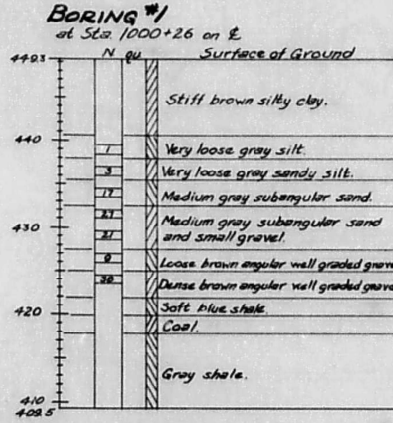 BORING #1
at Sta. 1000+26 on ℄
N qu Surface of Ground
449.3
Stiff brown silty clay.
440
1 Very loose gray silt.
3 Very loose gray sandy silt.
17 Medium gray subangular sand.
27
430 Medium gray subangular sand
21 and small gravel.
9 Loose brown angular well graded grave
30 Dense brown angular well graded grave
Soft blue shale.
420
Coal.
Gray shale.
410
409.5